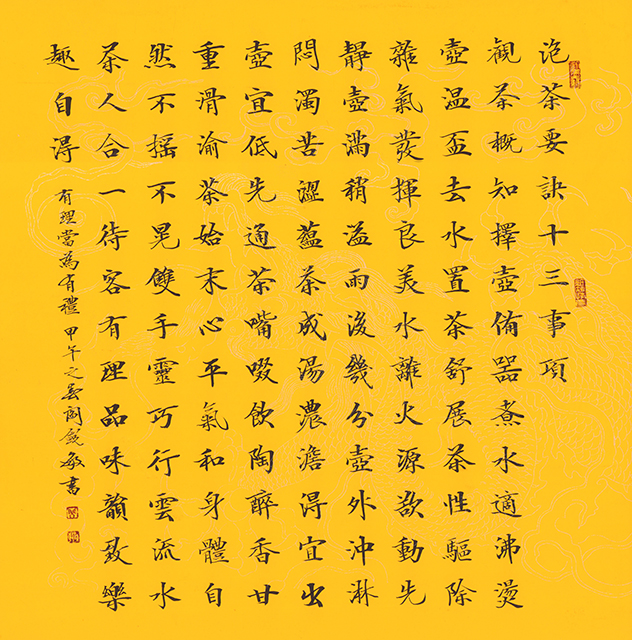 泡茶要訣十三事項
觀茶概知擇壺備器煮水適沸燙
壺温盃去水置茶舒展茶性驅除
雜氣發揮良美水離火源欲動先
靜壺滿稍溢雨後幾分壺外沖淋
悶濁苦澀蘊茶成湯濃澹得宜出
壺宜低先通茶嘴啜飲陶醉香甘
重滑渝茶始末心平氣和身體自
然不搖不晃雙手靈巧行雲流水
茶人合一待客有理品味韻致樂
趣自得
有理當為有禮 甲午之春 敏書